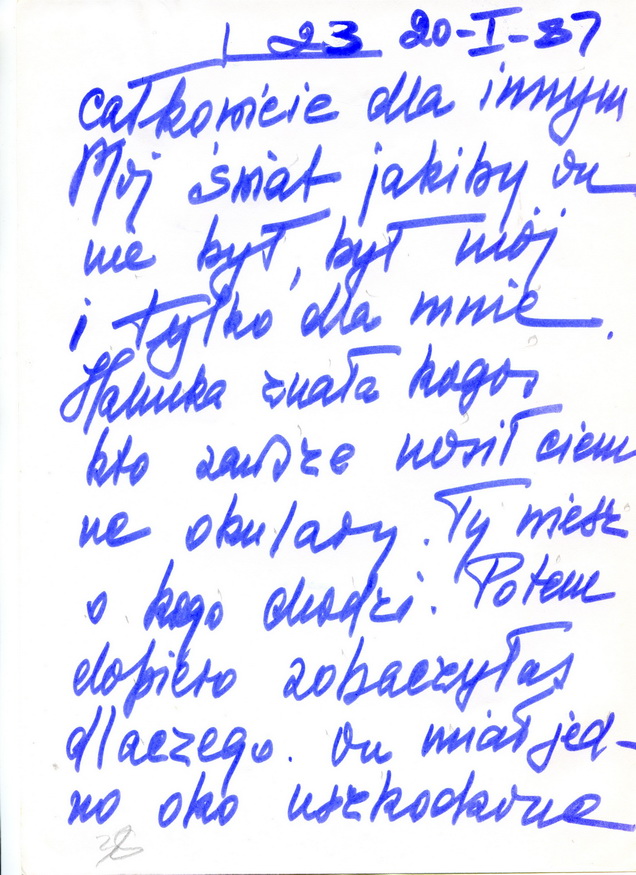 23 20-I-87
całkowicie dla innym
Mój świat jakiby on
nie był, był mój
i tylko dla mnie.
Halinka znała kogoś
kto zawsze nosił ciem
ne okulary. Ty wiesz
o kogo chodzi. Potem
dopiero zobaczyłaś
dlaczego. On miał jed-
no oko uszkodzone